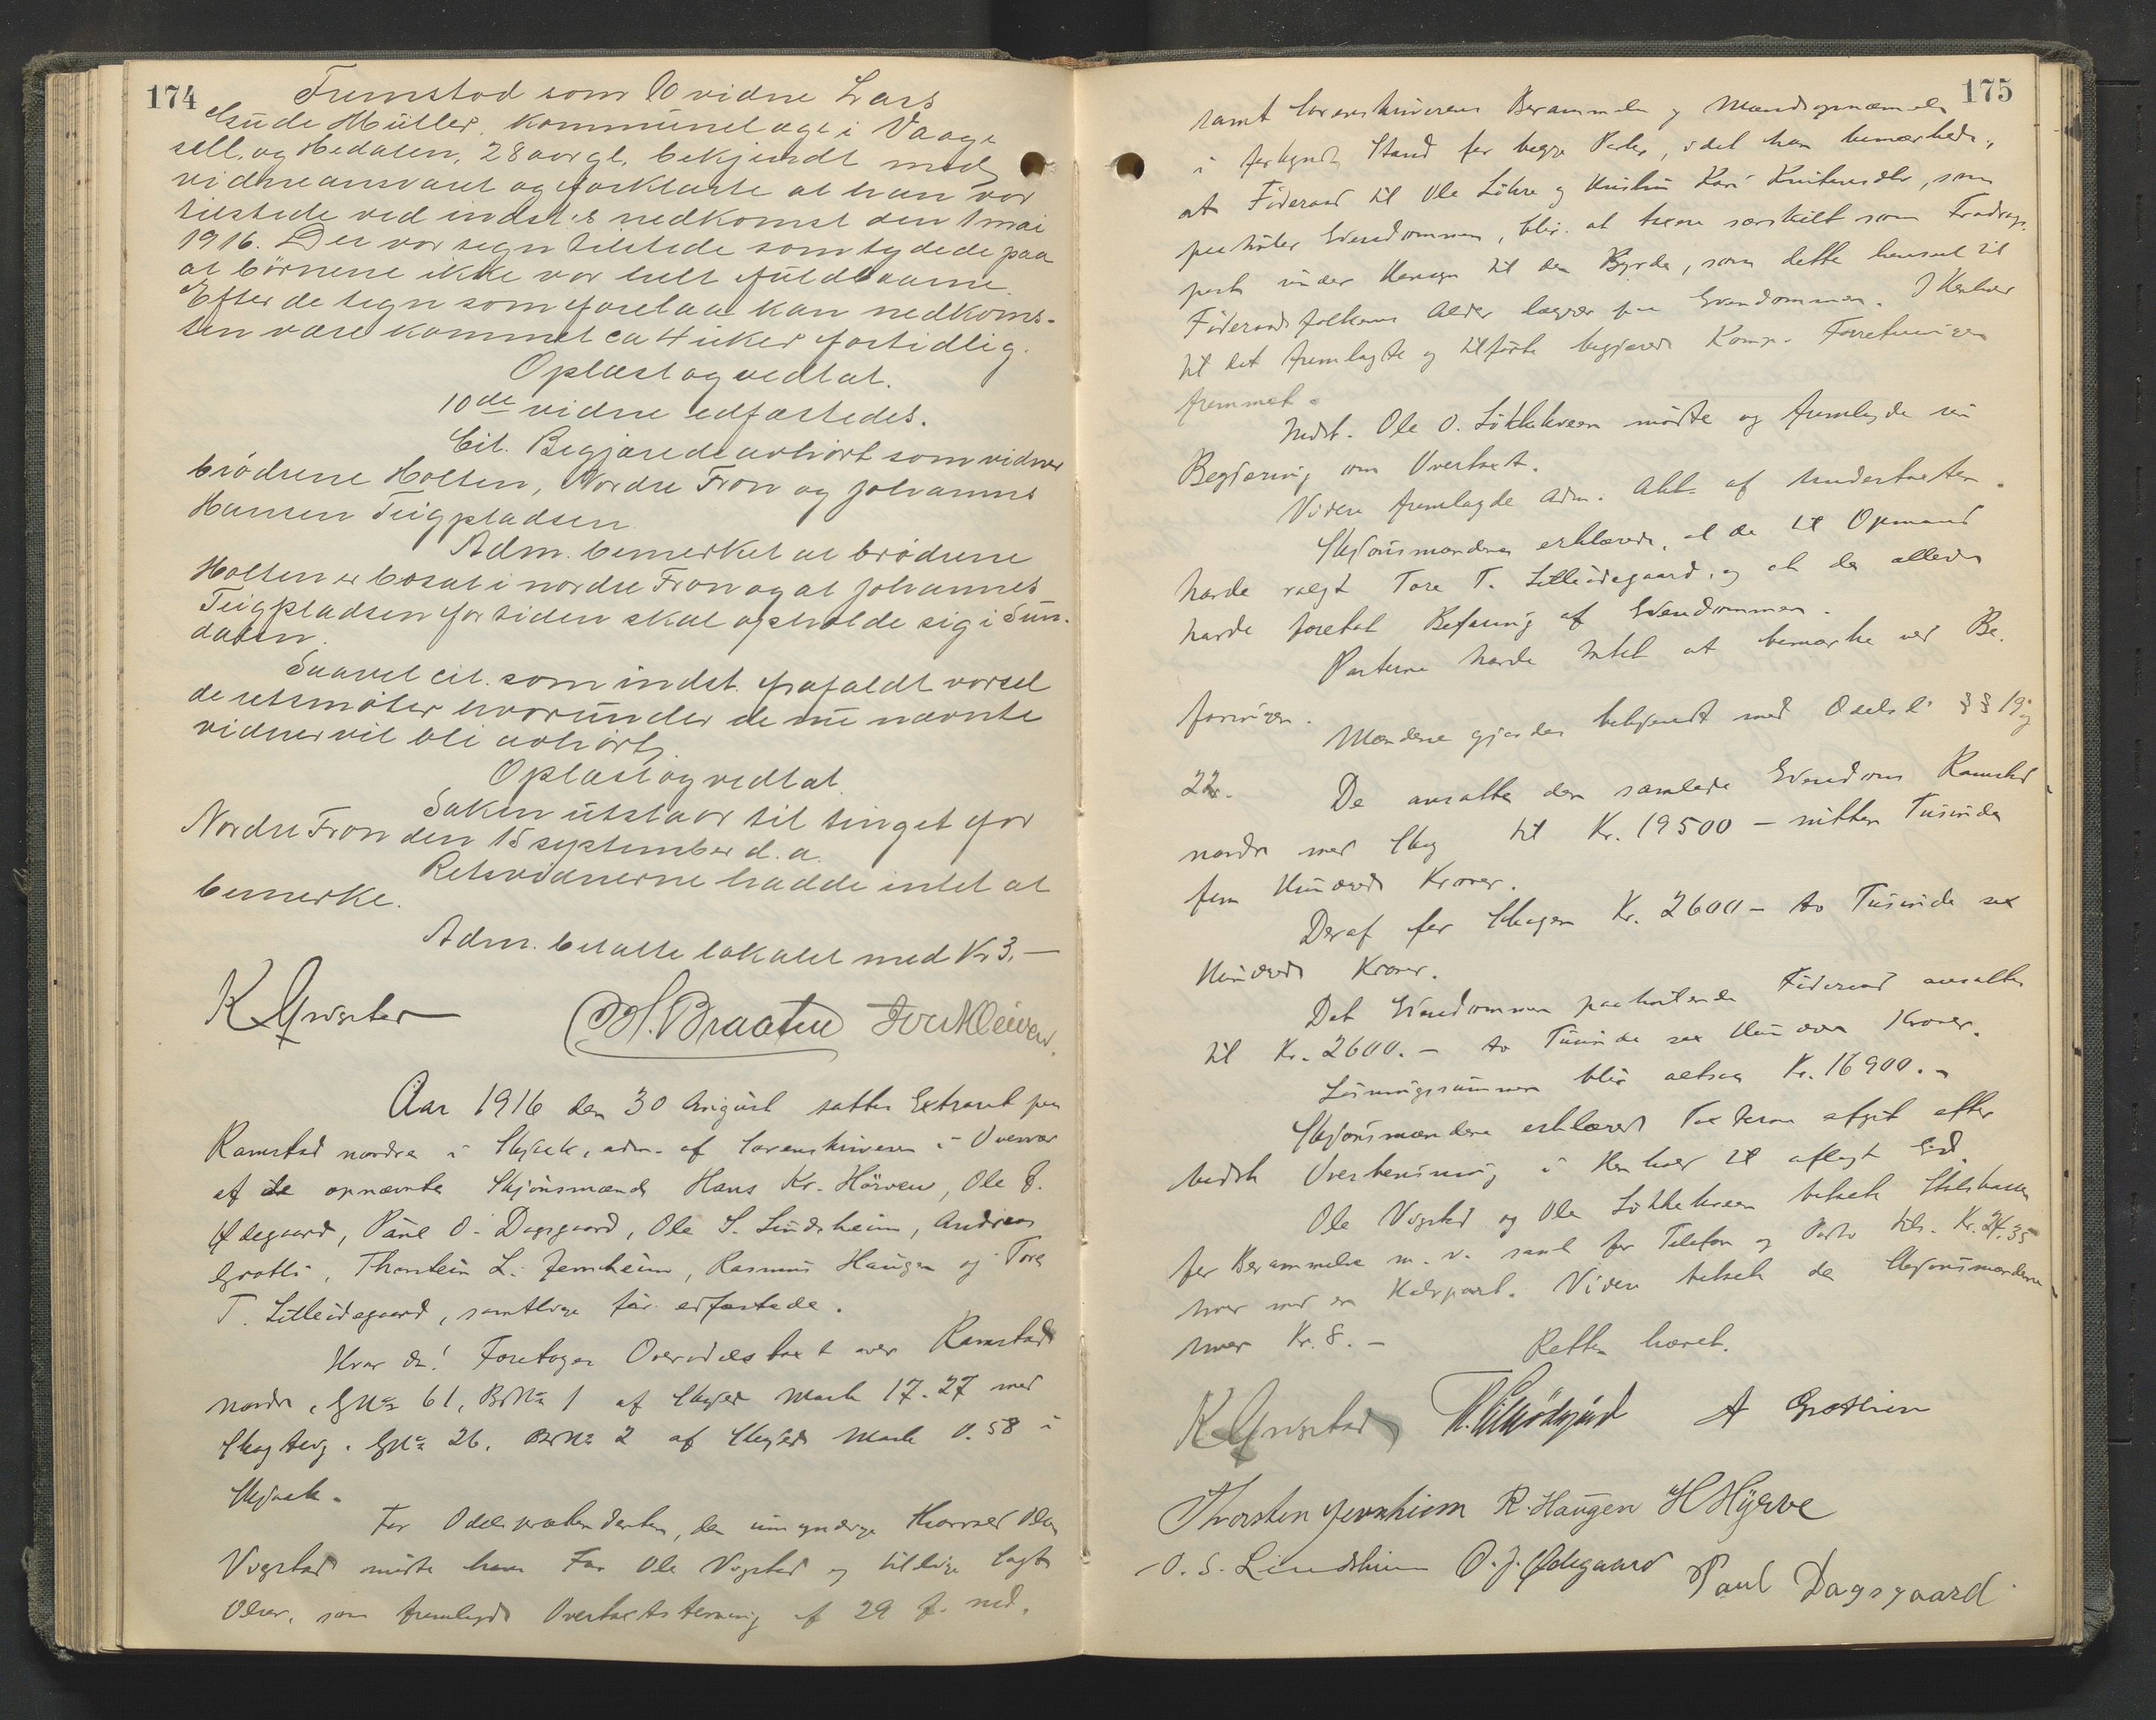 174
Fremstod som 10 vidne Lars
Müller, kommunelæge i Vaage
sell. og Hedalen, 28 aar gl. bekjendt med
vidneansvaret og forklarte at han var
tilstede ved indst.s nedkomst den 1 mai
1916. Der var tegn tilstede som tydede paa
at börnene ikke var helt fuldbaarne.
Efter de tegn som forelaa kan nedkoms-
ten være kommet ca 4 uker fortidlig.
Oplæst og vedtat.
10de vidne edfæstedes.
Cit. Begjærede avhört som vidner
brödrene Holten, Nordre Fron og Johannes
Hansen Teigpladsen
Adm. bemerket at brödrene
Holten er bosat i nordre Fron og at Johannes
Teigpladsen for tiden skal opholde sig i Sun-
dalen.
Saavel cit. som indst. frafaldt varsel
de retsmöter hvorunder de nu nævnte
vidner vil bli avhört.
Oplæst og vedtat.
Saken utstaar til tinget for
Nordre Fron den 15 september d.a.
Retsvidnerne hadde intet at
bemerke.
Adm. betalte lokalet med Kr 3.—
K Ø. Braaten Iver Kleiven.
Aar 1916 den 30 August sattes Extraret paa
Ramstad nordre i Skjaak, adm. af Sorenskriveren i Overvær
af de opnævnte Skjönsmænd Hans Kr. Hörven, Ole J.
Ødegaard, Paul O. Dagsgaard, Ole S. Lindsheim, Andreas
Grotli, Thorstein L. Jemheim, Rasmus Haugen og Tore
T. Lilleödegaard, samtlige för edfæstede.
Hvor da! Foretoges Overodelstaxt over Ramstad
nordre, GNo 61, BrNo 1 af Skyld Mark 17.27 med
Skogteig. GNo 26, BrNo 2 af Skyld Mark 0.58 i
Skjaak.
For Odelsprætendenten, den umyndige Olsen
Vigstad mötte hans Far Ole Vigstad og tillige
Olsen, som fremlagde Overtaxtstevning af 29 f. md.
175
samt Sorenskriverens Berammelse og Mandsopnævnelse
i forkyndt Stand for begge Parter, idet han bemærkede,
at Föderaad til Ole Lökre og Hustru Kari Knutsdtr, som
paahviler Eiendommen, blir at taxere særskilt som Fradrags-
post under Hensyn til den Byrde, som dette henset til
Föderaadsfolkenes Alder lægger paa Eiendommen. I Henhold
til det fremlagte og tilförte begjæred Komp. Forretningen
fremmet.
Indst. Ole O. Lökkekveen mödte og fremlagde sin
Begjæring om Overtaxt.
Videre fremlagde Adm. Akt af Undertaxten.
Skjönsmændene erklærede, at de til Opmand
havde valgt Tore T. Lilleödegaard, og at de allerede
havde foretat Befaring af Eiendommen.
Parterne havde Intet at bemærke ved Be-
faringen.
Mændene gjordes bekjendt med Odelsl. §§ 19 og
22.
De ansatte den samlede Eiendom Ramstad
nordre med Skog til Kr. 19500 — nitten Tusinde
fem Hundrede Kroner.
Deraf for Skogen Kr. 2600 — to Tusinde sex
Hundrede Kroner.
Det Eiendommen paahvilende Föderaad ansattes
til Kr. 2600. — to Tusinde sex Hundrede Kroner.
Lösningssummen blir altsaa Kr. 16900.—
Skjönsmændene erklæred Taxterne afgit efter
bedste Overbevisning i Henhold til aflagt Ed.
Ole Vigstad og Ole Lökkekveen betalte Skilshaven
for Berammelse m.v. samt for Telefon og Porto tils. Kr. 24.35
hver med en Halvpart. Videre betalte de Skjönsmændene
hver Kr. 8. —
Retten hævet.
K T. Lilleödegård A Grotlien
Thorsten Jemhiem R. Haugen H Hyrve
O. S. Lindshiem O. J. Ødegaard Paul Dagsgaard